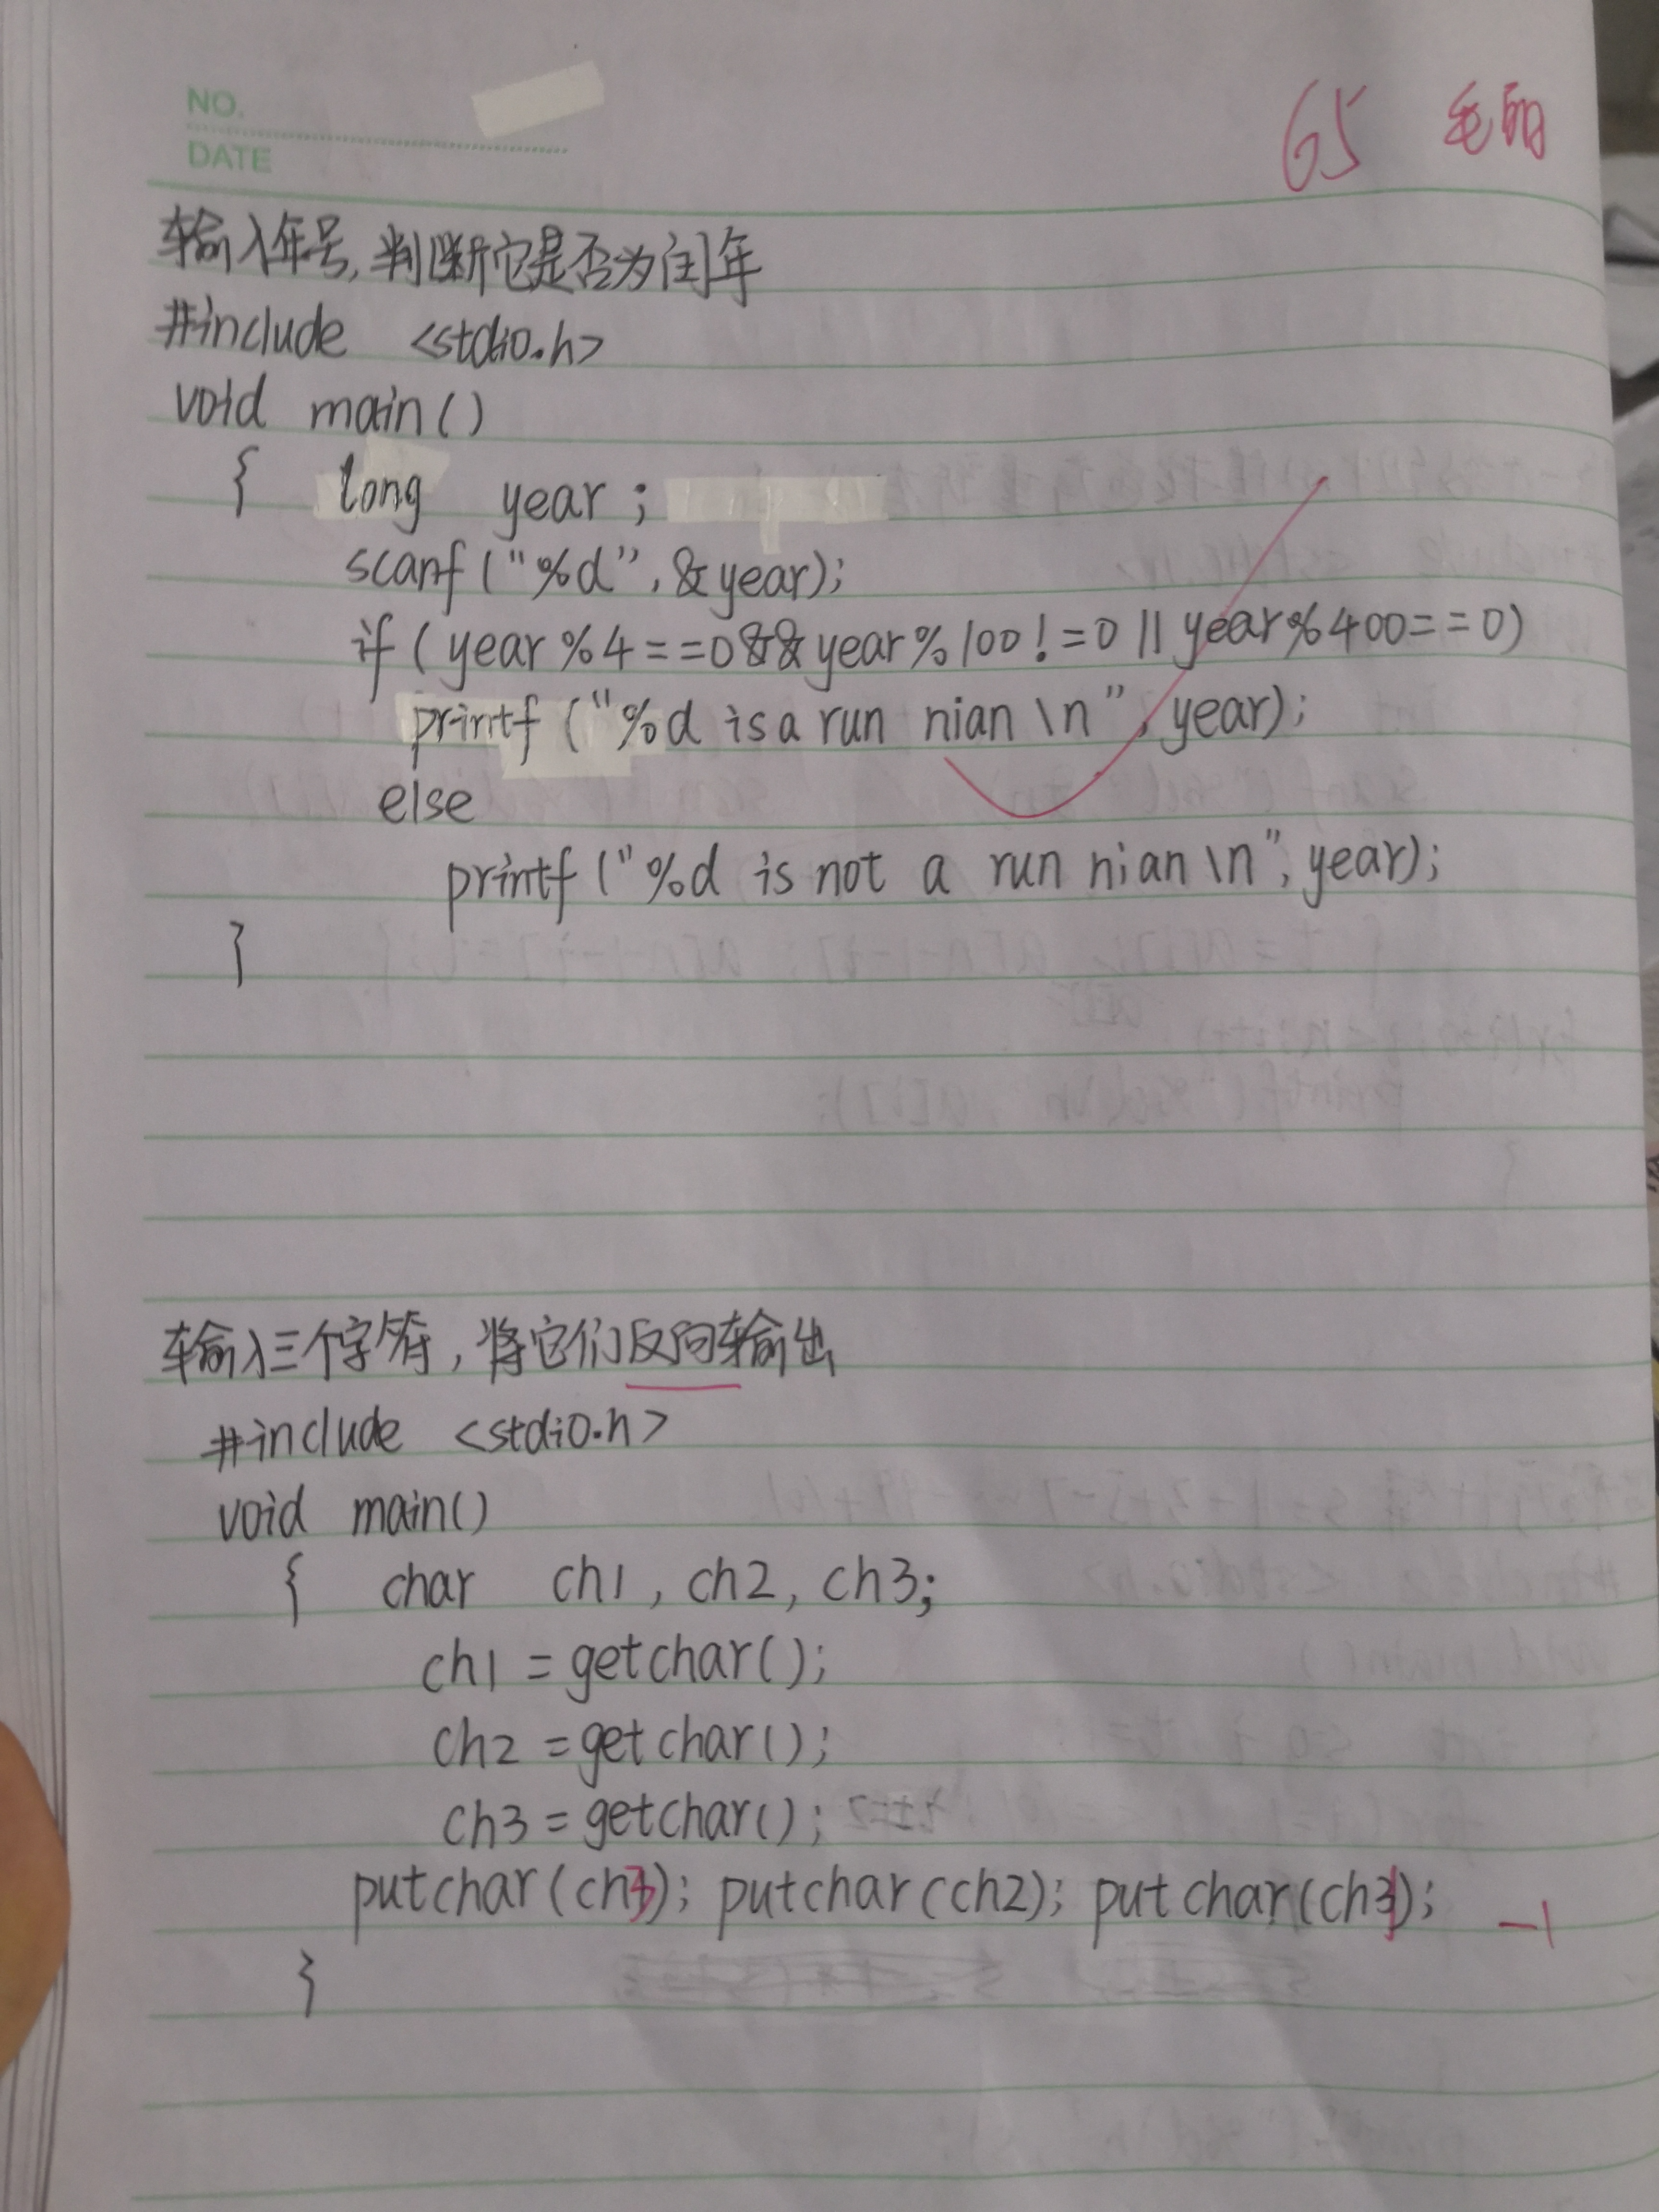 NO.
DATE
65
输入年号,判断它是否为闰年
#include <stdio.h>
void main()
{ long year ;
scanf ("%d", &year);
if ( year %4==0&&year%100!=0||year%400==0)
printf ("%d is a run nian \n", year);
else
printf ("%d is not a run nian \n", year);
}
输入三个字符,将它们反向输出
#include <stdio.h>
void main()
{ char ch1, ch2, ch3;
ch1 = getchar();
ch2 = getchar();
ch3 = getchar();
putchar(ch3); putchar(ch2); putchar(ch1); -1
}